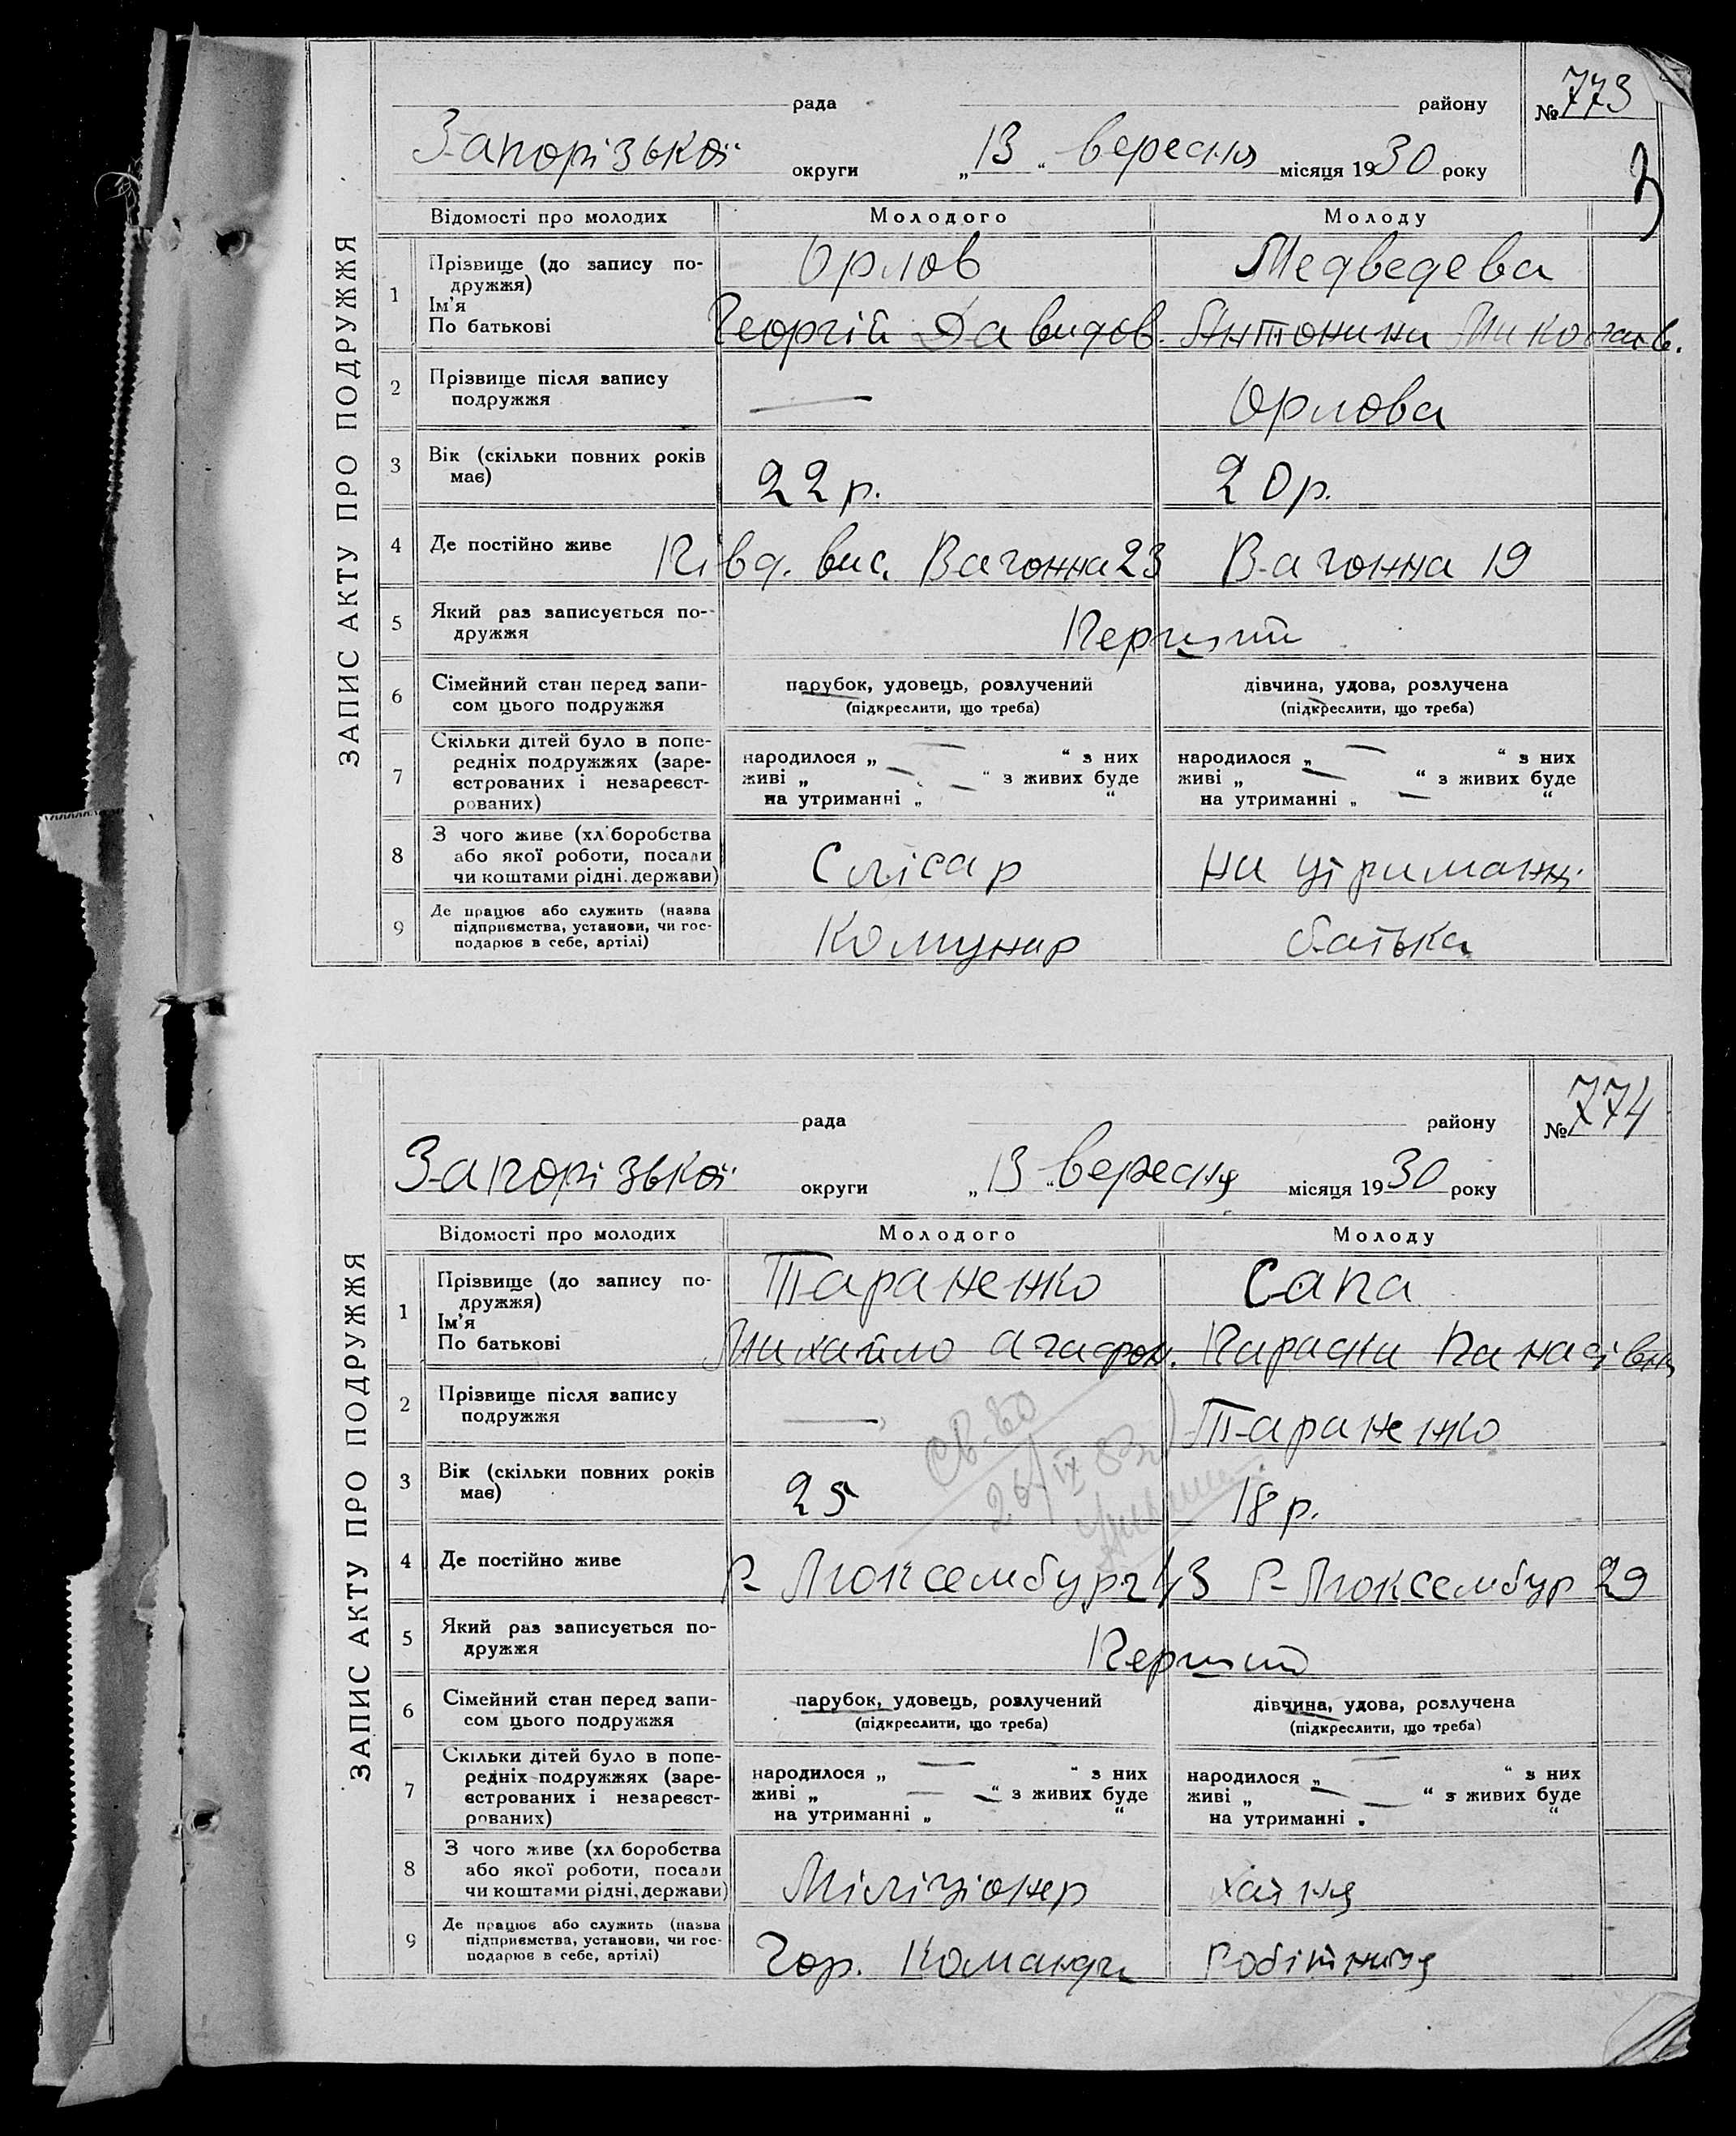 рада району №773
Запорізької округи „13“ вересня місяця 1930 року
3
ЗАПИС АКТУ ПРО ПОДРУЖЖЯ
Відомості про молодих Молодого Молоду
1 Прізвище (до запису по- Орлов Медведева
дружжя)
Ім'я
По батькові Георгій Давидов. Антонина Миколаїв.
2 Прізвище після запису
подружжя — Орлова
3 Вік (скільки повних років
має) 22 р. 20 р.
4 Де постійно живе Півд. вис. Вагонна 23 Вагонна 19
5 Який раз записується по-
дружжя Перший
6 Сімейний стан перед запи- парубок, удовець, розлучений дівчина, удова, розлучена
сом цього подружжя (підкреслити, що треба) (підкреслити, що треба)
7 Скільки дітей було в попе-
редніх подружжях (заре- народилося „ — “ з них народилося „ — “ з них
єстрованих і незареєст- живі „ — “ з живих буде живі „ — “ з живих буде
рованих) на утриманні „ — “ на утриманні „ — “
8 З чого живе (хл боробства
або якої роботи, посади Слюсар на утриманні
чи коштами рідні. держави)
9 Де працює або служить (назва
підприємства, установи, чи гос- Комунар батька
подарює в себе, артілі)
рада району №774
Запорізької округи „13“ вересня місяця 1930 року
ЗАПИС АКТУ ПРО ПОДРУЖЖЯ
Відомості про молодих Молодого Молоду
1 Прізвище (до запису по- Тараненко Сапа
дружжя)
Ім'я
По батькові Михайло Агафон. Параска Панасівна
2 Прізвище після запису
подружжя — Тараненко
Св-во
3 Вік (скільки повних років
має) 25 18 р.
4 Де постійно живе Р-Люксембург 43 Р-Люксембур 29
5 Який раз записується по-
дружжя Перший
6 Сімейний стан перед запи- парубок, удовець, розлучений дівчина, удова, розлучена
сом цього подружжя (підкреслити, що треба) (підкреслити, що треба)
7 Скільки дітей було в попе-
редніх подружжях (заре- народилося „ — “ з них народилося „ — “ з них
єстрованих і незареєст- живі „ — “ з живих буде живі „ — “ з живих буде
рованих) на утриманні „ — “ на утриманні „ — “
8 З чого живе (хл боробства
або якої роботи, посади Міліціонер хатня
чи коштами рідні, держави)
9 Де працює або служить (назва
підприємства, установи, чи гос- Гор. Команди робітниця
подарює в себе, артілі)